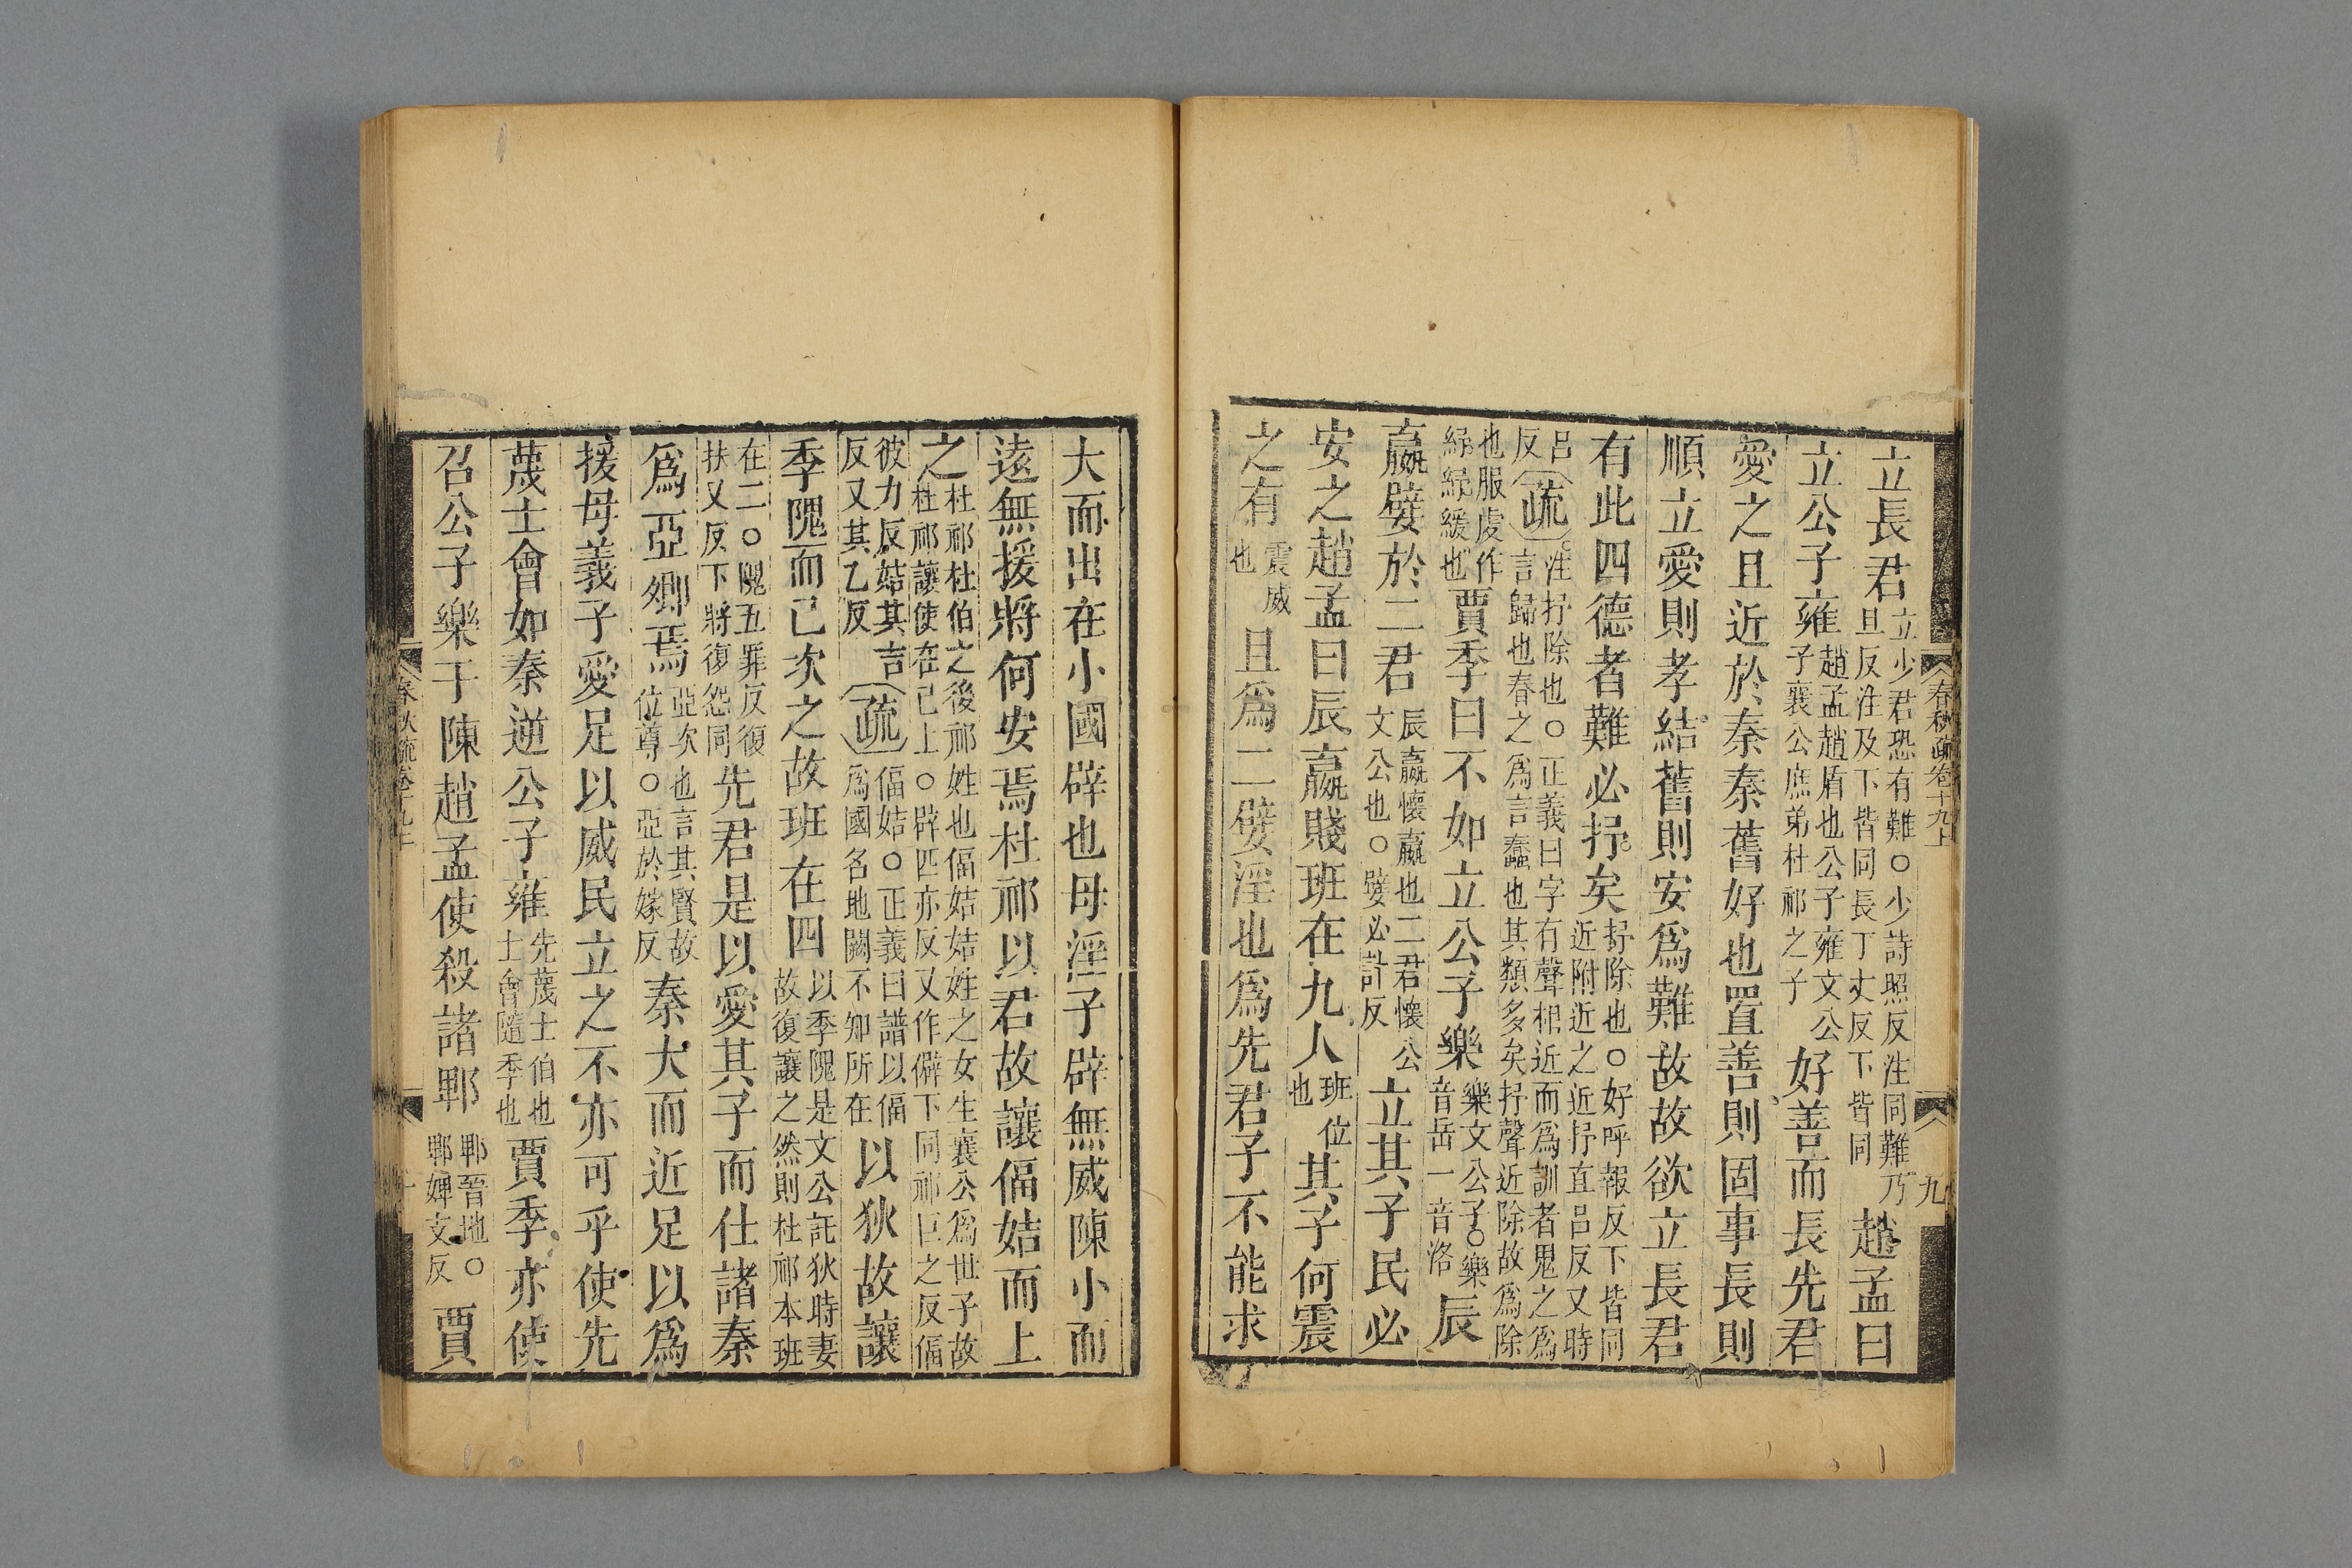 立長君立少君恐有難○少詩照反注同難乃旦反注及下皆同長丁丈反下皆同趙孟曰
立公子雍趙孟趙盾也公子雍文公子襄公庶弟杜祁之子好善而長先君
愛之且近於秦秦舊好也置善則固事長則
順立愛則孝結舊則安爲難故故欲立長君
有此四德者難必抒矣抒除也○好呼報反下皆同近附近之近抒直吕反又時
吕反疏注抒除也○正義曰字有聲相近而爲訓者鬼之爲言歸也春之爲言蠢也其類多矣抒聲近除故爲除
也服虔作紓紓緩也賈季曰不如立公子樂樂文公子○樂音岳一音洛辰
嬴嬖於二君辰嬴懷嬴也二君懷公文公也○嬖必計反立其子民必
安之趙孟曰辰嬴賤班在九人班位也其子何震
之有震威也且爲二嬖淫也爲先君子不能求
春秋疏卷十九上
九
大而出在小國辟也母淫子辟無威陳小而
遠無援將何安焉杜祁以君故讓偪姞而上
之杜祁杜伯之後祁姓也偪姞姞姓之女生襄公爲世子故杜祁讓使在己上○辟匹亦反又作僻下同祁巨之反偪
彼力反姞其吉反又其乙反疏偪姞○正義曰譜以偪爲國名地闕不知所在以狄故讓
季隗而己次之故班在四以季隗是文公託狄時妻故復讓之然則杜祁本班
在二○隗五罪反復扶又反下將復怨同先君是以愛其子而仕諸秦
爲亞卿焉亞次也言其賢故位尊○亞於嫁反秦大而近足以爲
援母義子愛足以威民立之不亦可乎使先
蔑士會如秦逆公子雍先蔑士伯也士會隨季也賈季亦使
召公子樂于陳趙孟使殺諸郫郫晉地○郫婢支反賈
春秋疏卷十九上
十